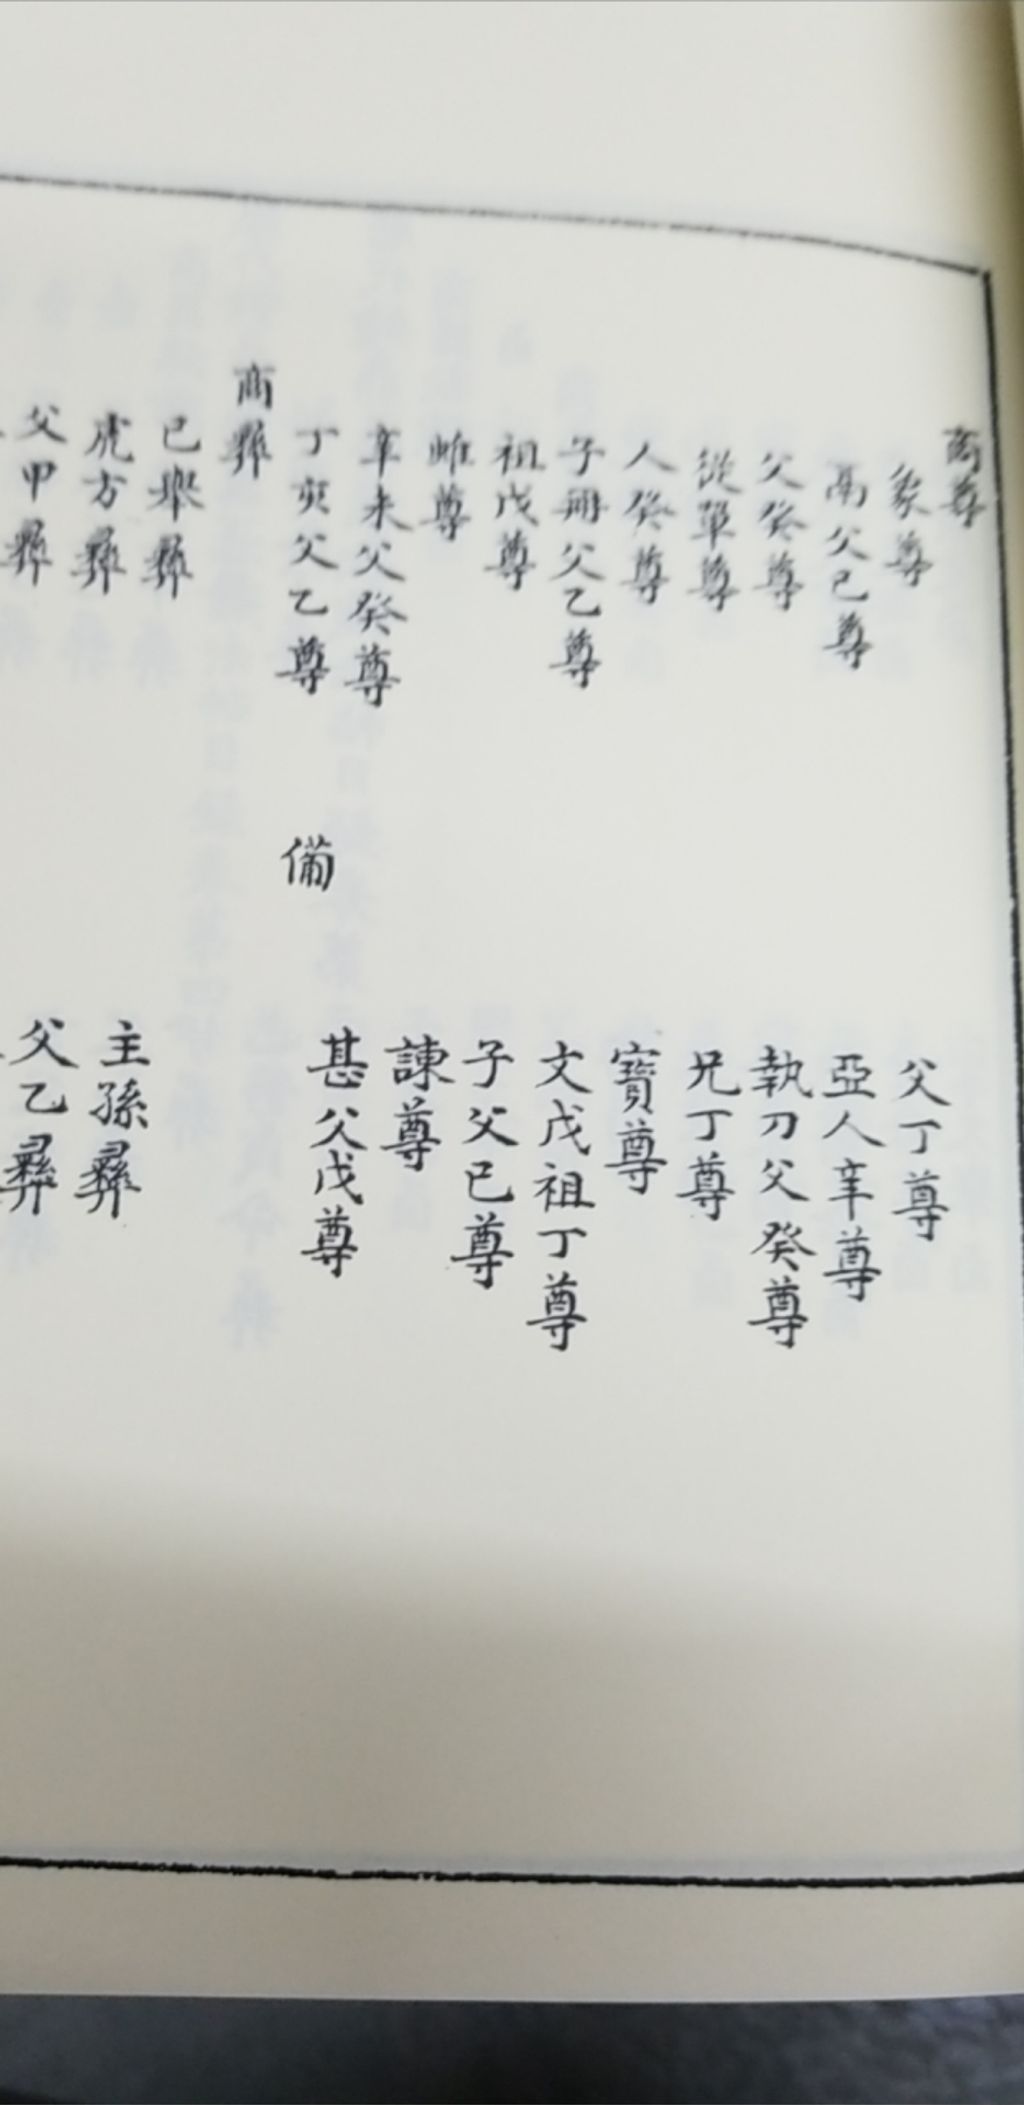 商尊
象尊
父丁尊
鬲父己尊
亞人辛尊
父癸尊
執刀父癸尊
從單尊
兄丁尊
人癸尊
寶尊
子冊父乙尊
文戊祖丁尊
祖戊尊
子父己尊
雌尊
諫尊
辛未父癸尊
甚父戊尊
丁寅父乙尊
備
商彝
己舉彝
主孫彝
虎方彝
父乙彝
父甲彝